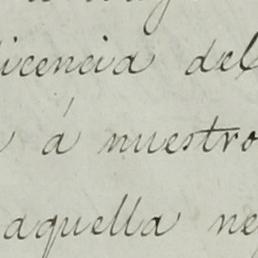 licencia del
á nuestro
aquella